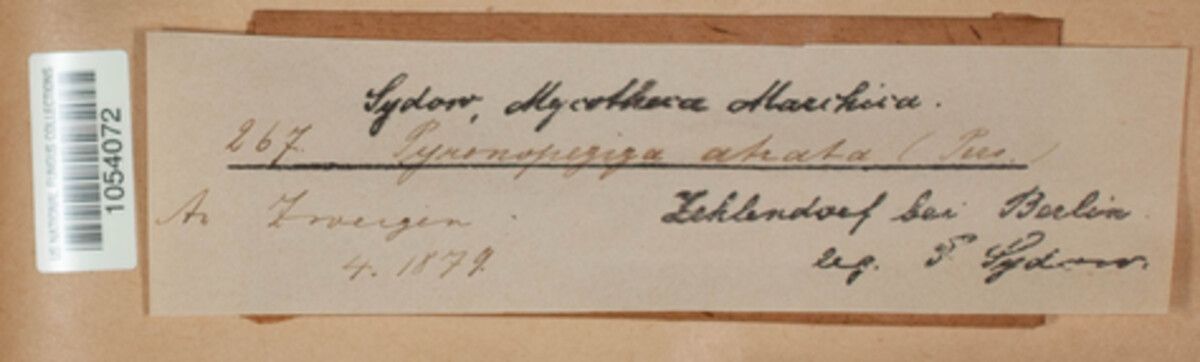 US NATIONAL FUNGUS COLLECTIONS
1054072
Sydow, Mycotheca Marchica.
267. Pyrenopeziza atrata (Pers.)
An Zweigen
4. 1879.
Zehlendorf bei Berlin.
leg. P. Sydow.